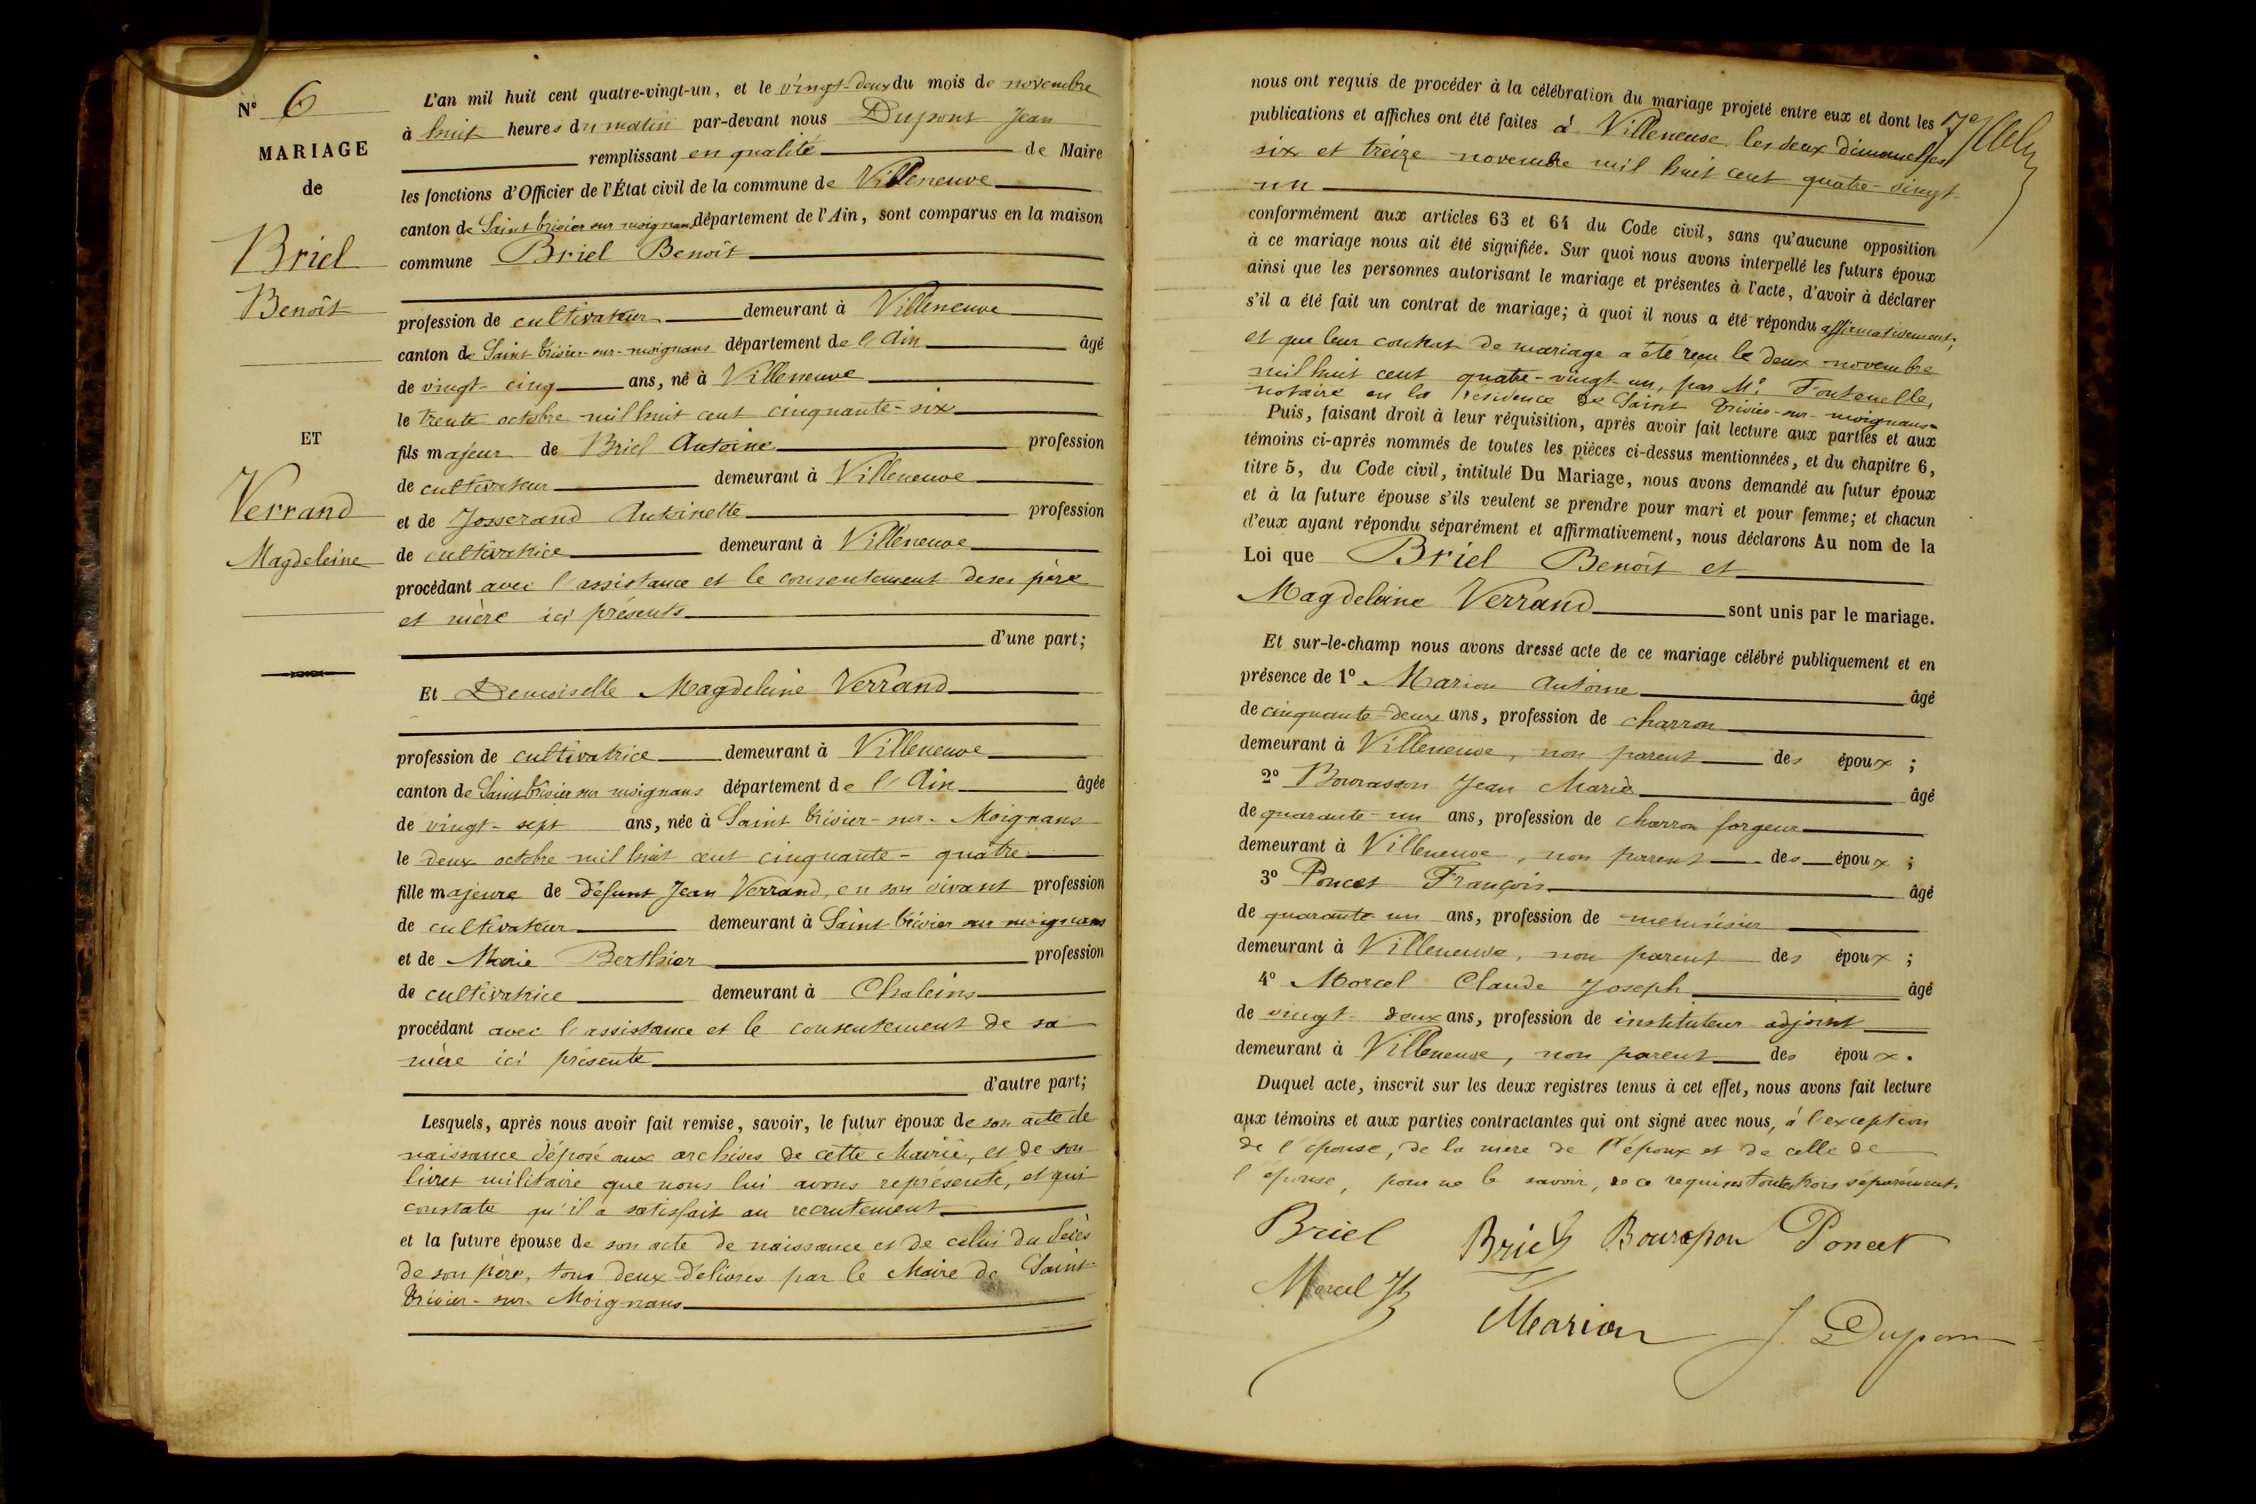 N° 6
MARIAGE
de
Briel
Benoît
ET
Verrand
Magdeleine
L'an mil huit cent quatre-vingt-un, et le vingt-deux du mois de novembre
à huit heures du matin par-devant nous Dupont Jean
remplissant en qualité de Maire
les fonctions d'Officier de l'État civil de la commune de Villeneuve
canton de Saint trivier sur moignans, département de l'Ain, sont comparus en la maison
commune Briel Benoît
profession de cultivateur demeurant à Villeneuve
canton de Saint-trivier-sur-moignans département de l'Ain âgé
de vingt-cinq ans, né à Villeneuve
le trente octobre mil huit cent cinquante-six
fils majeur de Briel Antoine profession
de cultivateur demeurant à Villeneuve
et de Josserand Antoinette profession
de cultivatrice demeurant à Villeneuve
procédant avec l'assistance et le consentement de ses père
et mère ici présents
d'une part;
Et Demoiselle Magdeleine Verrand
profession de cultivatrice demeurant à Villeneuve
canton de Saint trivier sur moignans département de l'Ain âgée
de vingt-sept ans, née à Saint trivier-sur-Moignans
le deux octobre mil huit cent cinquante-quatre
fille majeure de défunt Jean Verrand, en son vivant profession
de cultivateur demeurant à Saint trivier sur moignans
et de Marie Berthier profession
de cultivatrice demeurant à Chaleins
procédant avec l'assistance et le consentement de sa
mère ici présente
d'autre part;
Lesquels, après nous avoir fait remise, savoir, le futur époux de son acte de
naissance déposé aux archives de cette Mairie, et de son
livret militaire que nous lui avons représenté, et qui
constate qu'il a satisfait au recrutement
et la future épouse de son acte de naissance et de celui du décès
de son père, tous deux délivrés par le Maire de Saint-
trivier-sur-Moignans
nous ont requis de procéder à la célébration du mariage projeté entre eux et dont les
publications et affiches ont été faites à Villeneuve les deux dimanches
six et treize novembre mil huit cent quatre-vingt
un
conformément aux articles 63 et 64 du Code civil, sans qu'aucune opposition
à ce mariage nous ait été signifiée. Sur quoi nous avons interpellé les futurs époux
ainsi que les personnes autorisant le mariage et présentes à l'acte, d'avoir à déclarer
s'il a été fait un contrat de mariage; à quoi il nous a été répondu affirmativement,
et que leur contrat de mariage a été reçu le deux novembre
mil huit cent quatre-vingt-un, par Me Fontenelle,
notaire en la résidence de Saint trivier-sur-moignans
Puis, faisant droit à leur réquisition, après avoir fait lecture aux parties et aux
témoins ci-après nommés de toutes les pièces ci-dessus mentionnées, et du chapitre 6,
titre 5, du Code civil, intitulé Du Mariage, nous avons demandé au futur époux
et à la future épouse s'ils veulent se prendre pour mari et pour femme; et chacun
d'eux ayant répondu séparément et affirmativement, nous déclarons Au nom de la
Loi que Briel Benoît et
Magdeleine Verrand sont unis par le mariage.
Et sur-le-champ nous avons dressé acte de ce mariage célébré publiquement et en
présence de 1° Marion Antoine âgé
de cinquante-deux ans, profession de charron
demeurant à Villeneuve, non parent des époux;
2° Bourasson Jean Marie âgé
de quarante-un ans, profession de charron forgeur
demeurant à Villeneuve, non parent des époux;
3° Poncet François âgé
de quarante un ans, profession de menuisier
demeurant à Villeneuve, non parent des époux;
4° Morcel Claude Joseph âgé
de vingt-deux ans, profession de instituteur adjoint
demeurant à Villeneuve, non parent des époux.
Duquel acte, inscrit sur les deux registres tenus à cet effet, nous avons fait lecture
aux témoins et aux parties contractantes qui ont signé avec nous, à l'exception
de l'épouse, de la mère de l'époux et de celle de
l'épouse, pour ne le savoir, de ce requises toutes trois séparément.
Briel Briel Poncet
Morcel
Marion J. Dupont